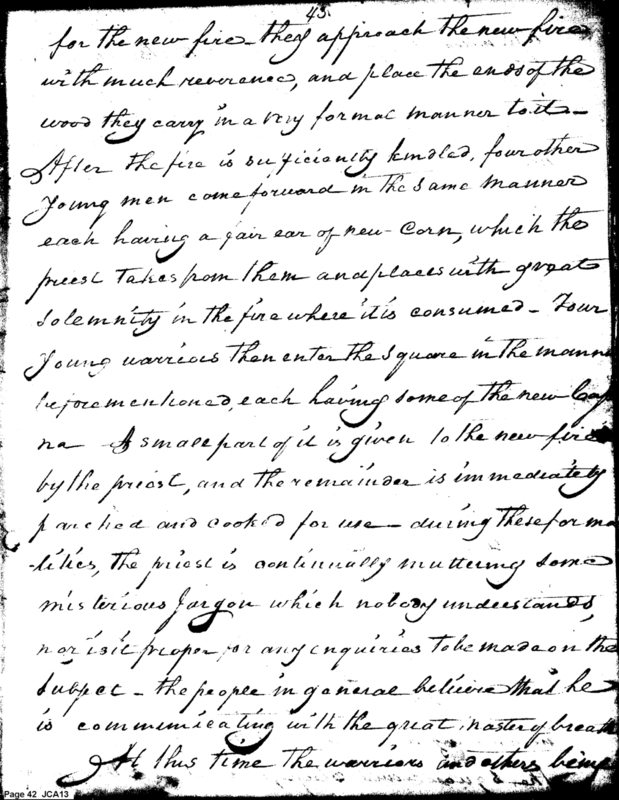 43.
for the new fire – they approach the new fire
with much reverence, and place the ends of the
wood they carry in a very formal manner to it –
After the fire is sufficiently kindled, four other
young men come forward in the same manner
each having a fair ear of new-corn, which the
priest takes from them and places with great
solemnity in the fire where it is consumed – Four
young warriors then enter the square in the mann
before mentioned, each having some of the new Casi
na – A small part of it is given to the new fire
by the priest, and the remainder is immediately
parched and cooked for use – during these forma
-lities, the priest is continually muttering some
misterious jargon which nobody understands,
nor is it proper for any enquiries to be made on the
subject – the people in general believe that he
is communicating with the great master of breath
At this time the warriors and others being
Page 42 JCA13